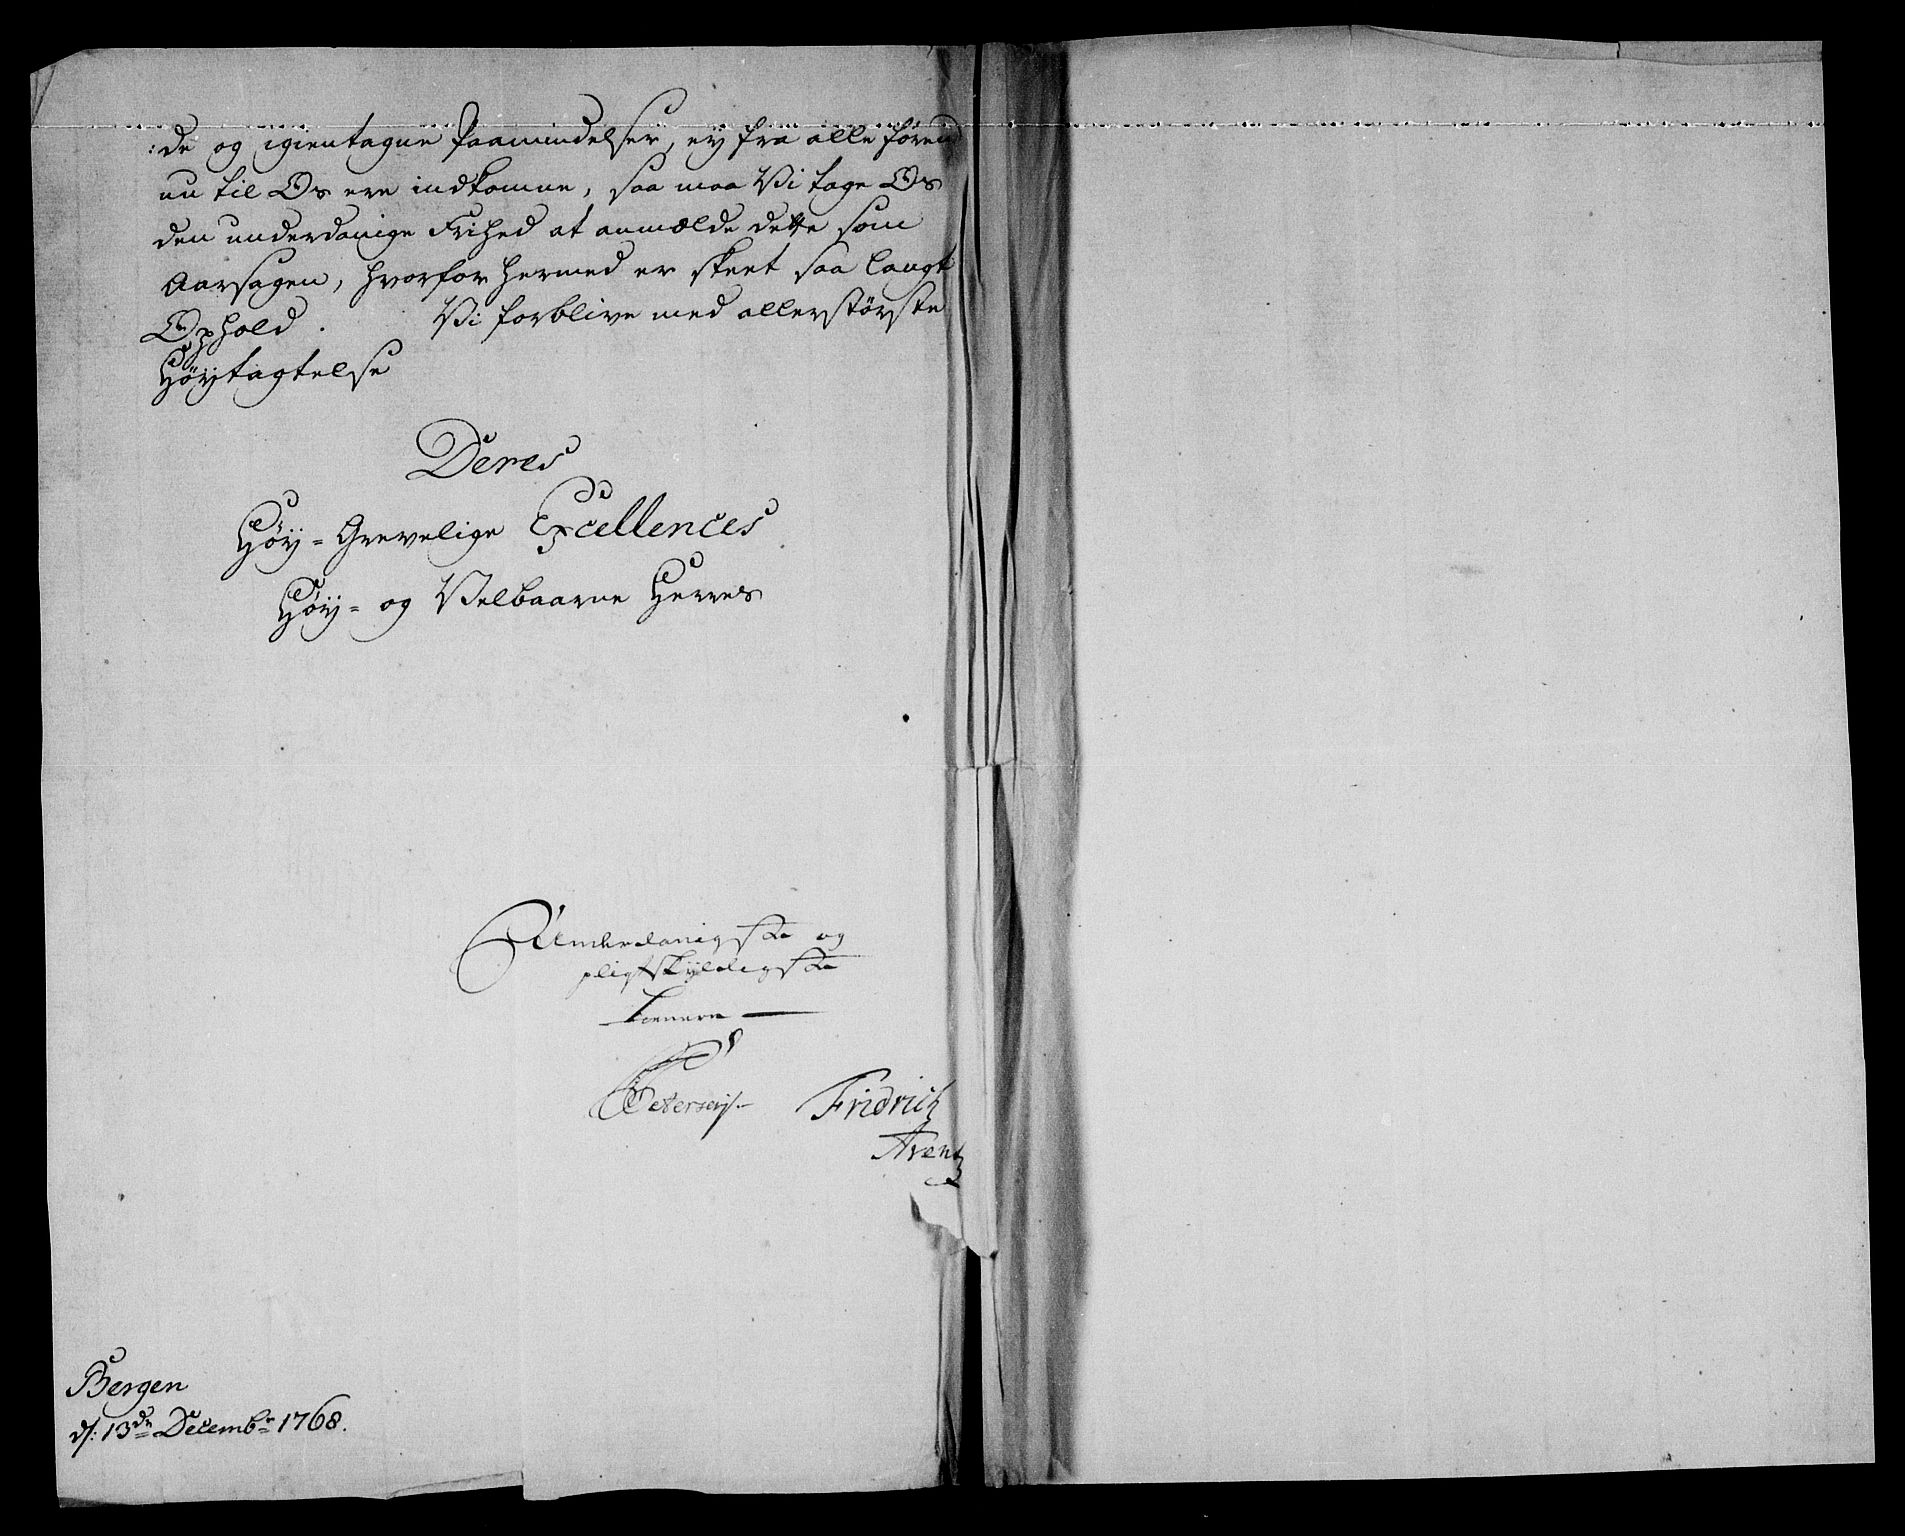 :de og igientagne Paamindelser, ey fra alle førend
nu til Os ere indkomne, saa maa Vi tage Os
den underdanige Frihed at anmælde dette som
Aarsagen, hvorfor hermed er skeet saa langt
Ophold. Vi forblive med allerstørste
Høyagtelse
Deres
Høy- Grevelige Excellences
Høy- og Velbaarne Herres
Underdanigste og
pligtskyldigste
tienere
Petersen
Fridrich
Arentz
Bergen
d: 13de Decembr 1768.